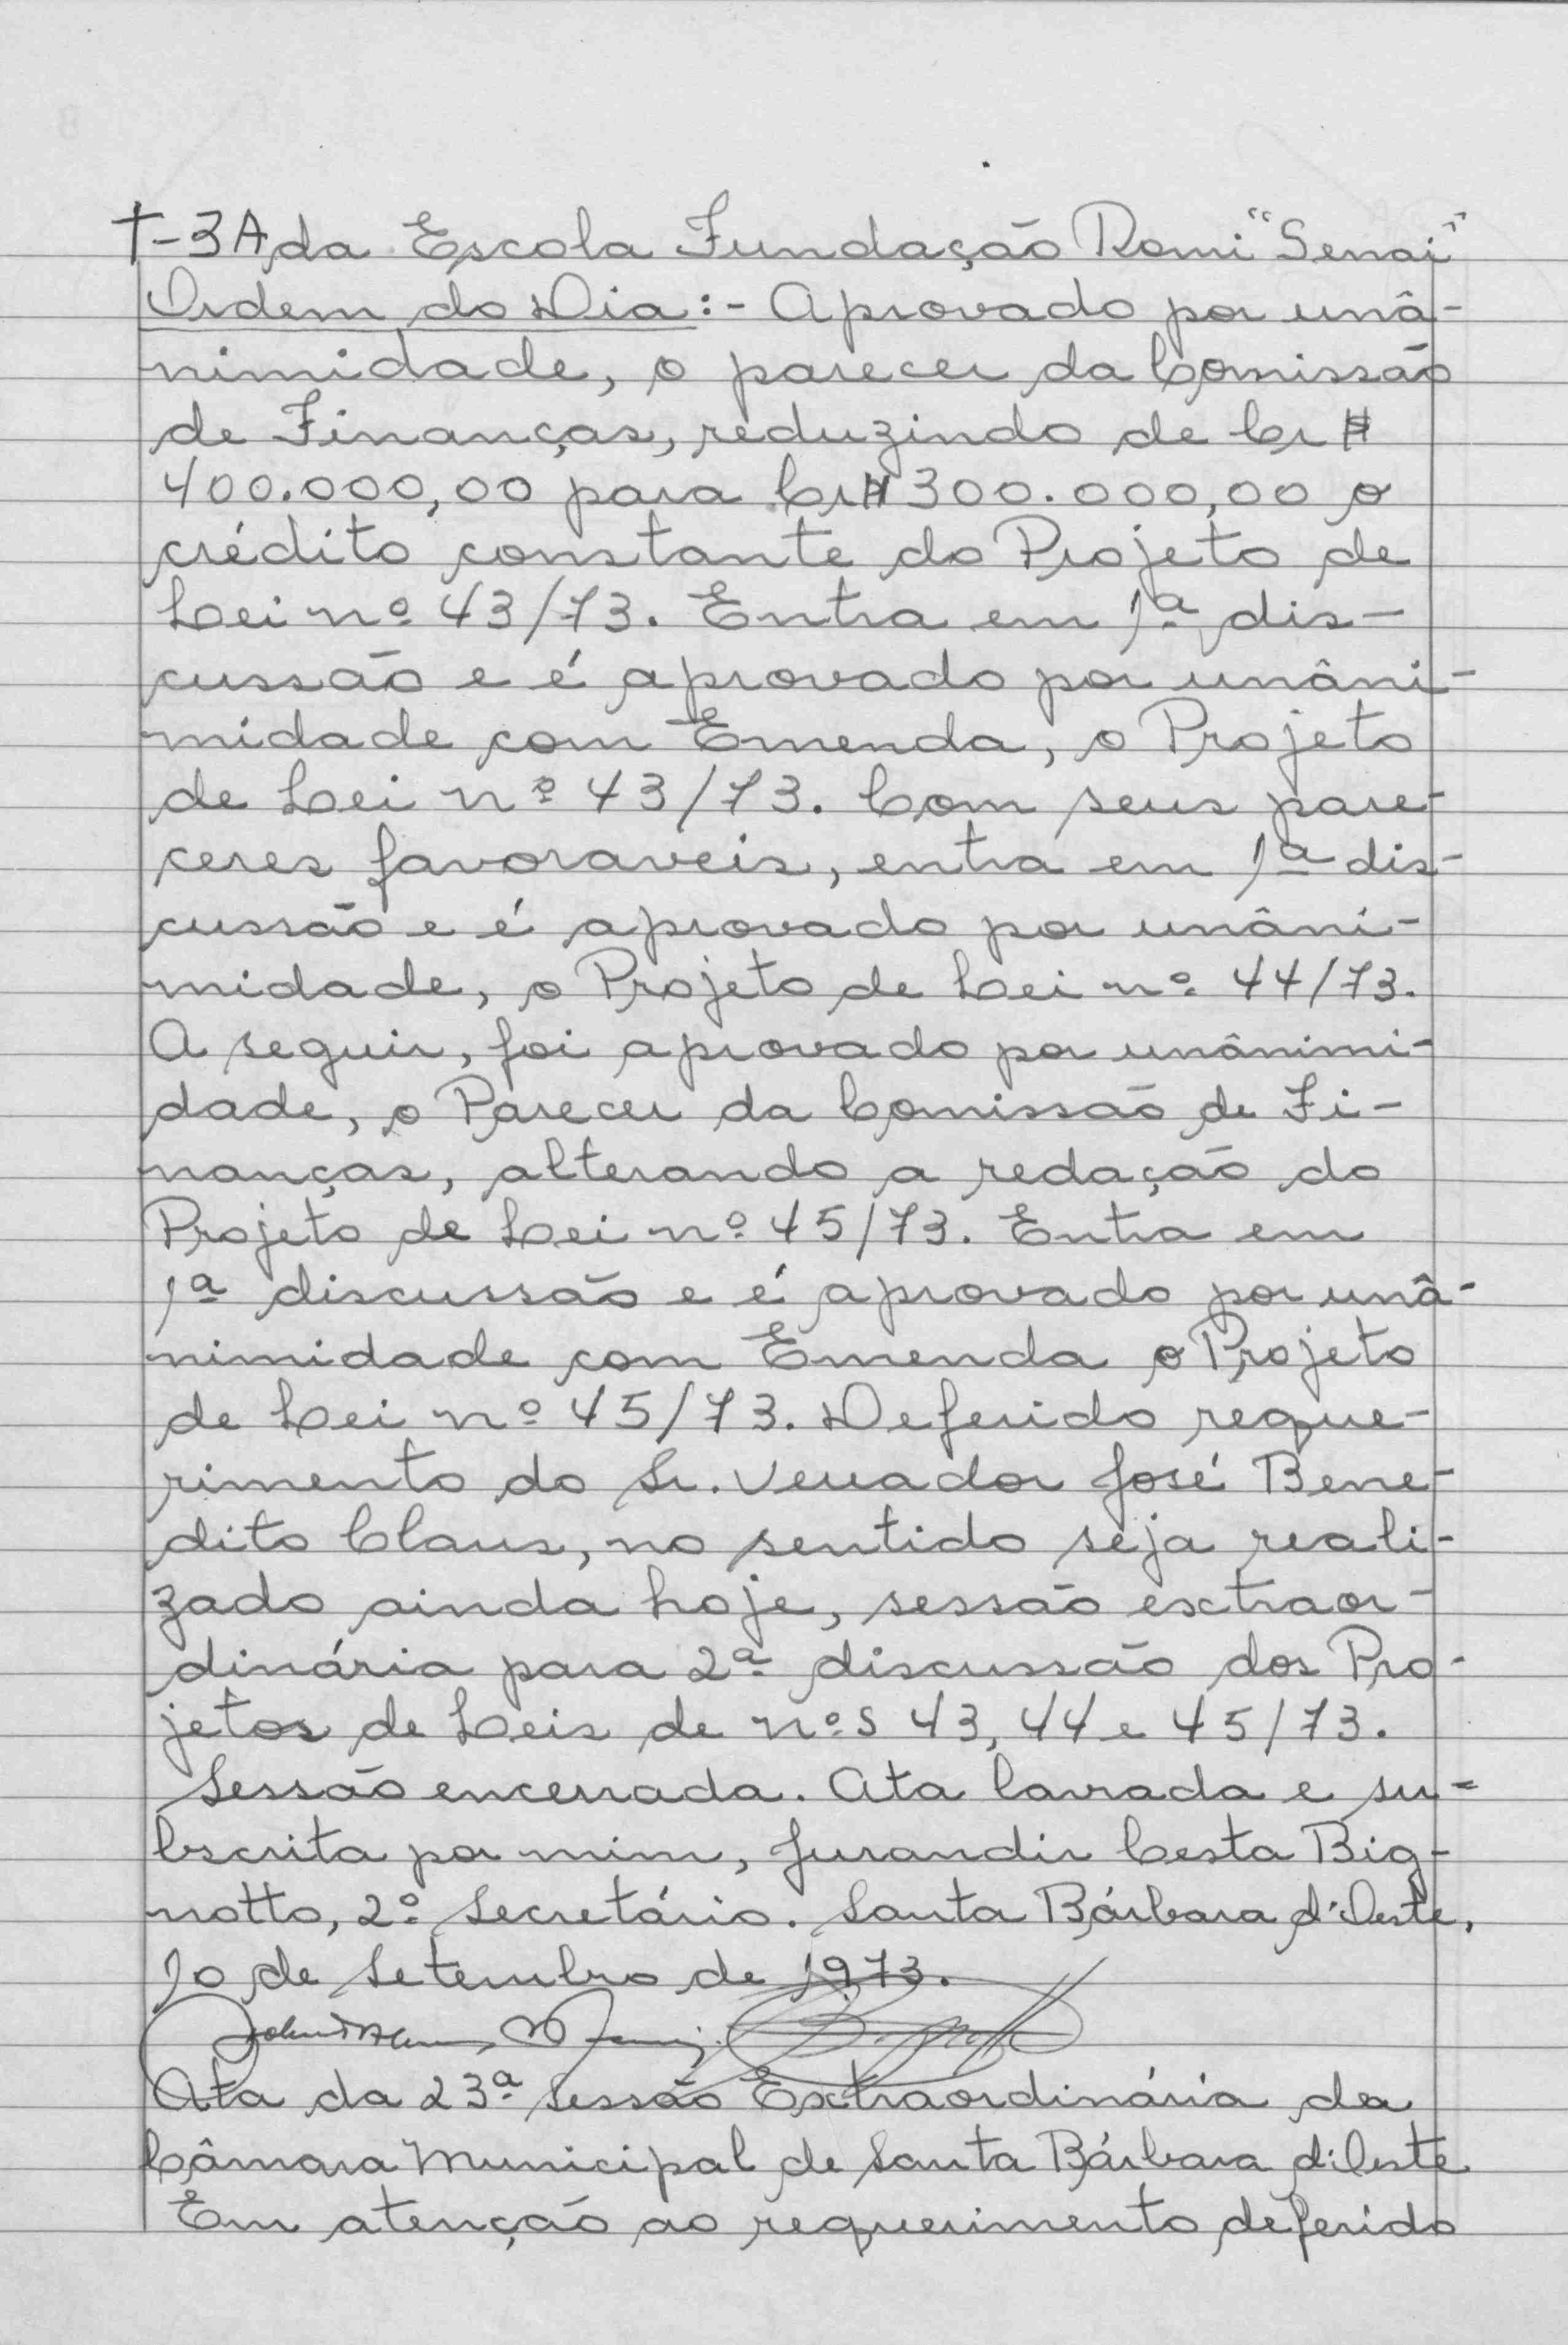 T-3A da Escola Fundação Romi "Senai"
Ordem do Dia:- Aprovado por unâ-
nimidade, o parecer da Comissão
de Finanças, reduzindo de Cr$
400.000,00 para Cr$ 300.000,00 o
crédito constante do Projeto de
Lei nº 43/73. Entra em 1ª dis-
cussão e é aprovado por unâni-
midade com Emenda, o Projeto
de Lei nº 43/73. Com seus pare-
ceres favoraveis, entra em 1ª dis-
cussão e é aprovado por unâni-
midade, o Projeto de Lei nº 44/73.
A seguir, foi aprovado por unânimi-
dade, o Parecer da Comissão de Fi-
nanças, alterando a redação do
Projeto de Lei nº 45/73. Entra em
1ª discussão e é aprovado por unâ-
nimidade com Emenda o Projeto
de Lei nº 45/73. Deferido reque-
rimento do Sr. Vereador José Bene-
dito Claus, no sentido seja reali-
zado ainda hoje, sessão extraor-
dinária para 2ª discussão dos Pro-
jetos de Leis de nºs 43, 44 e 45/73.
Sessão encerrada. Ata lavrada e su-
bscrita por mim, Jurandir Cesta Big-
notto, 2º Secretário. Santa Bárbara d'Oeste,
10 de Setembro de 1973.
Ata da 23ª Sessão Extraordinária da
Câmara Municipal de Santa Bárbara d'Oeste
Em atenção ao requerimento deferido